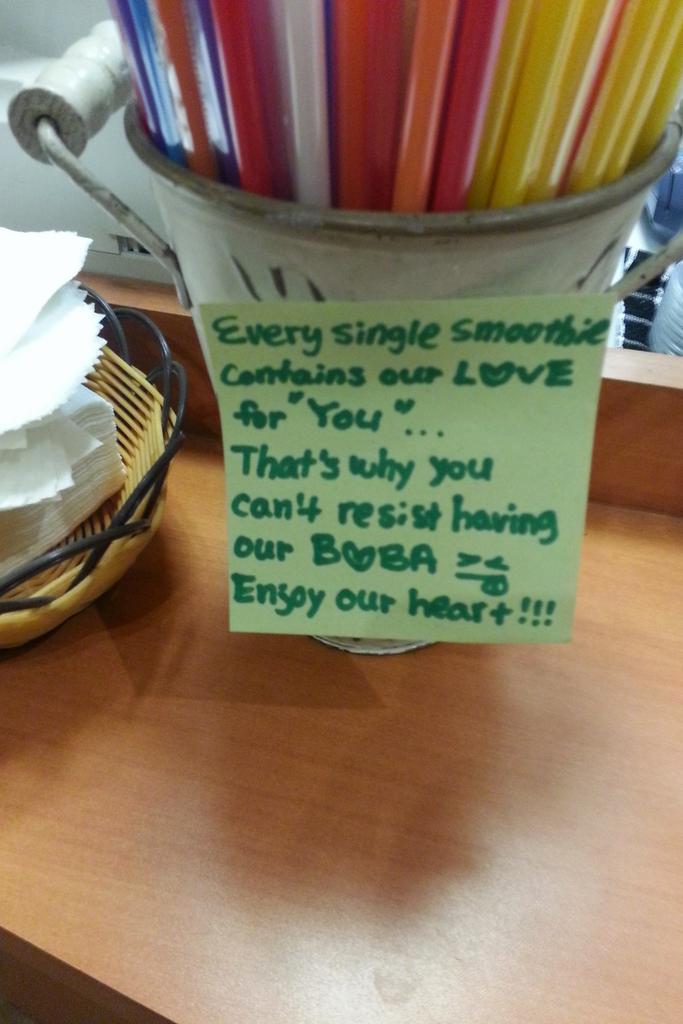 Every single smoothie
contains our L♥VE
for "You"...
That's why you
can't resist having
our B♥BA
Enjoy our heart!!!